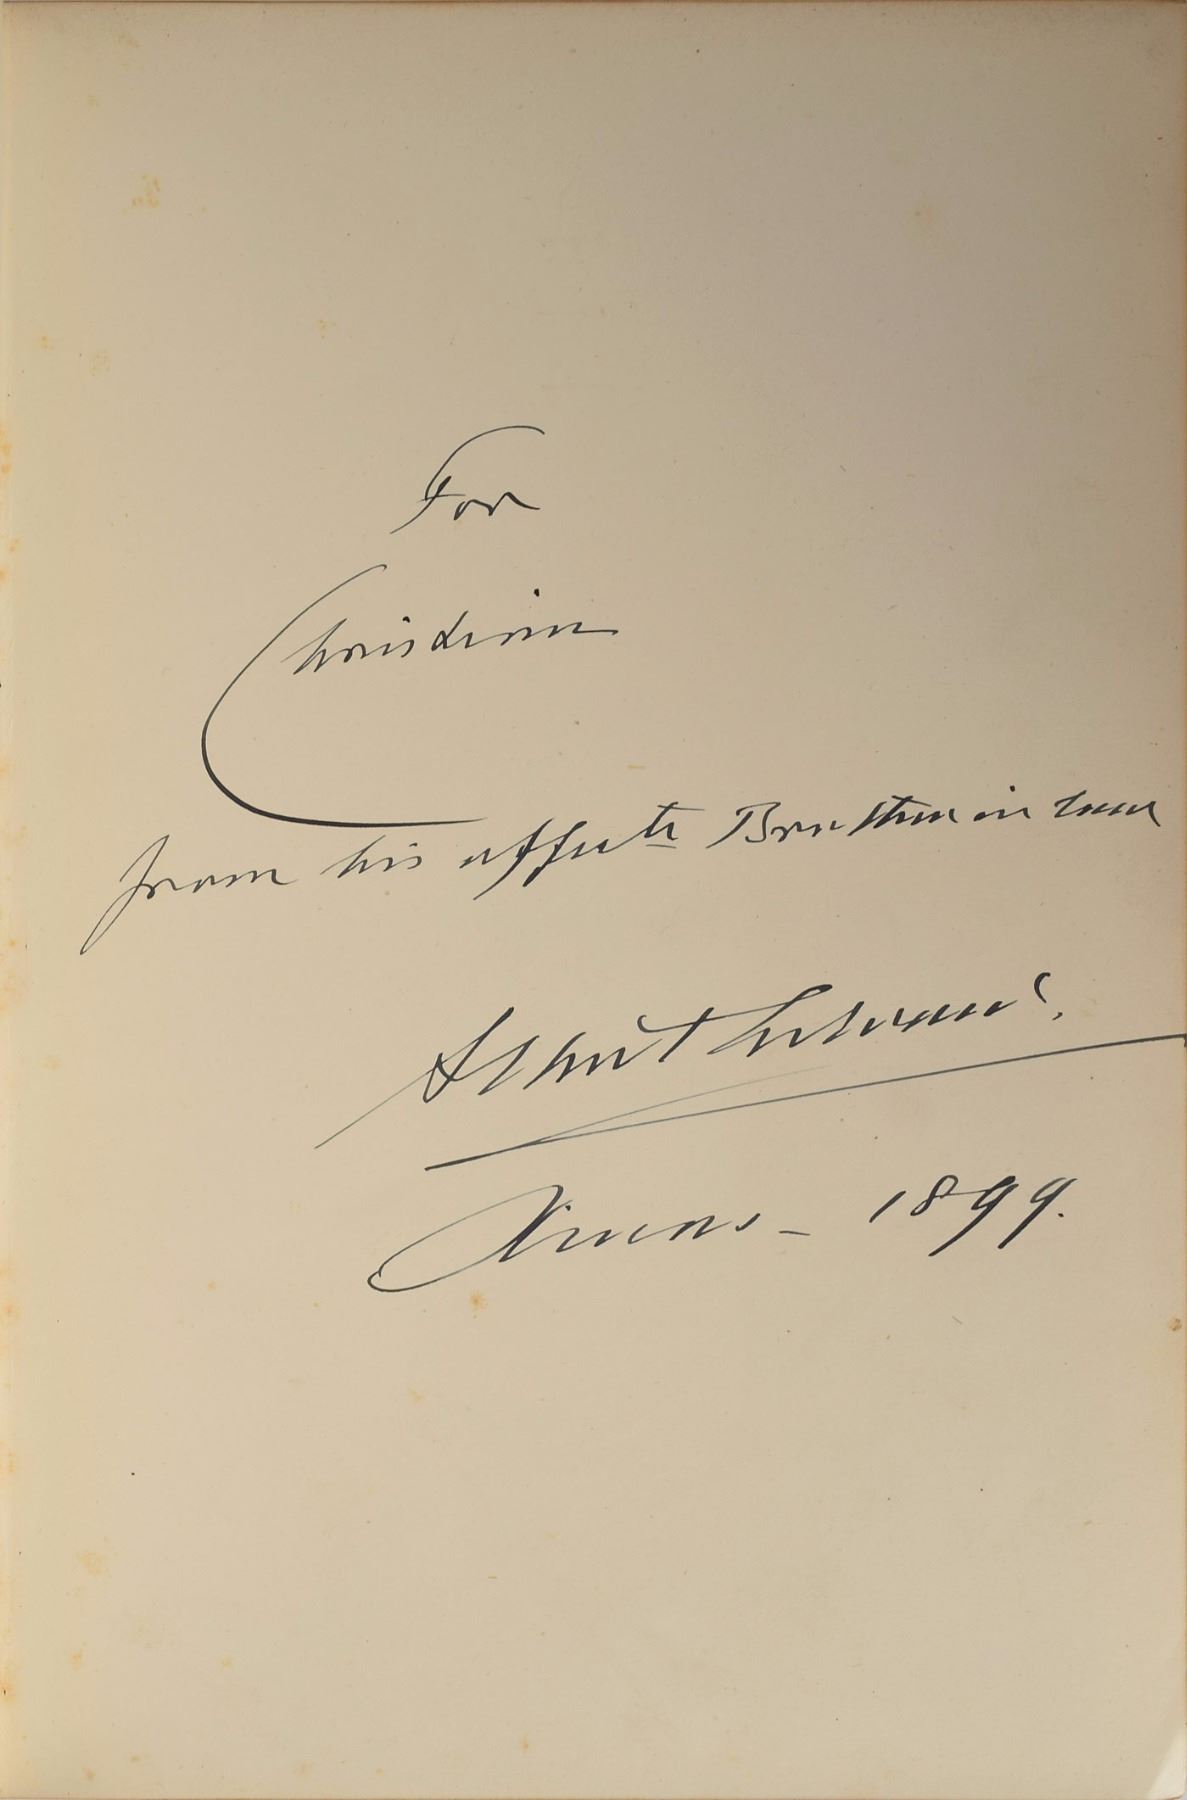 For
Christian
from his affecte Brother in law
Xmas – 1899.